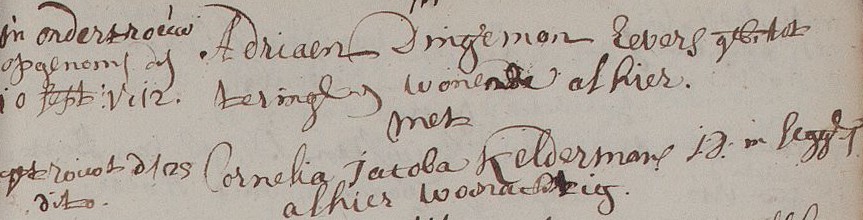 in ondertrouw
opgenom̄ dē
10 Sept: 1712.
Adriaen Dingeman Levers geb. tot
teringē wonende alhier.
met
getrout d' 25
dito.
Cornelia Jacoba Keldermans J.D. in
alhier woonachtig.